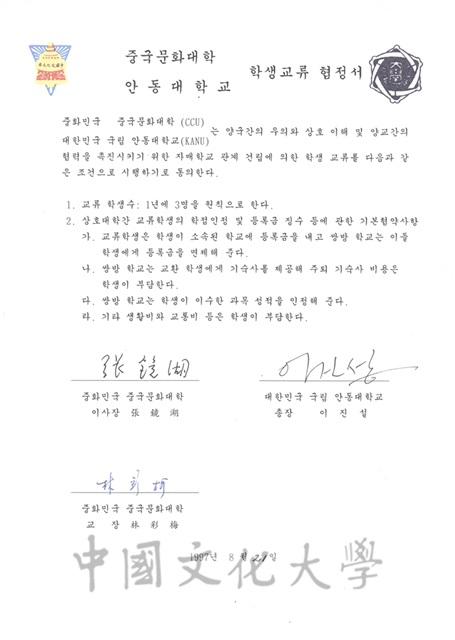 중국문화대학
안동대학교
학생교류 협정서
중화민국 중국문화대학 (CCU)
대한민국 국립 안동대학교(KANU)
는 양국간의 우의와 상호 이해 및 양교간의
협력을 촉진시키기 위한 자매학교 관계 건립에 의한 학생 교류를 다음과 같
은 조건으로 시행하기로 동의한다.
1. 교류 학생수: 1년에 3명을 원칙으로 한다.
2. 상호대학간 교류학생의 학점인정 및 등록금 징수 등에 관한 기본협약사항
가. 교류학생은 학생이 소속된 학교에 등록금을 내고 쌍방 학교는 이들
학생에게 등록금을 면제해 준다.
나. 쌍방 학교는 교환 학생에게 기숙사를 제공해 주되 기숙사 비용은
학생이 부담한다.
다. 쌍방 학교는 학생이 이수한 과목 성적을 인정해 준다.
라. 기타 생활비와 교통비 등은 학생이 부담한다.
張鏡湖
이진설
중화민국 중국문화대학
이사장 張 鏡 湖
대한민국 국립 안동대학교
총장 이 진 설
林彩梅
중화민국 중국문화대학
교 장 林 彩 梅
1997년 8월 21일
中國文化大學